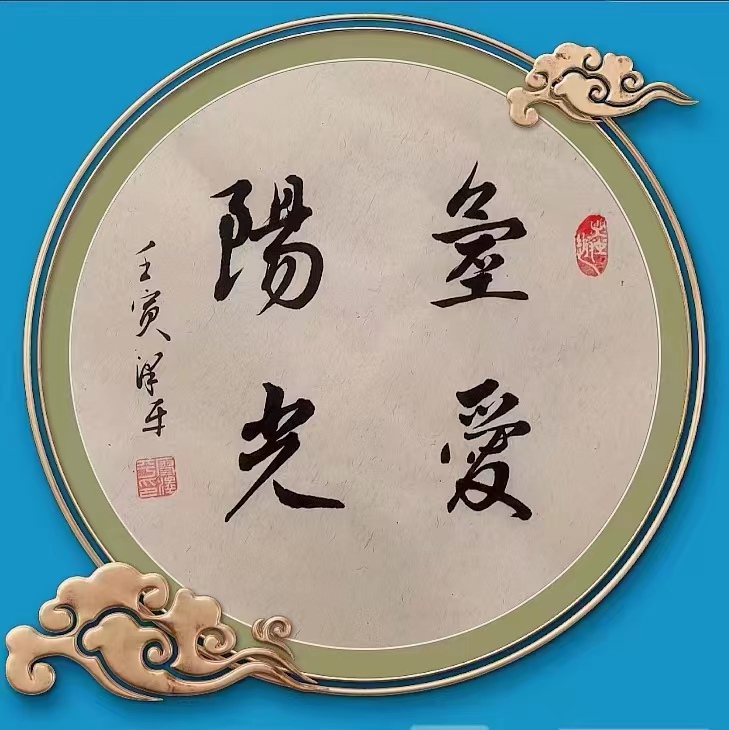 愛
陽光
壬寅澤平